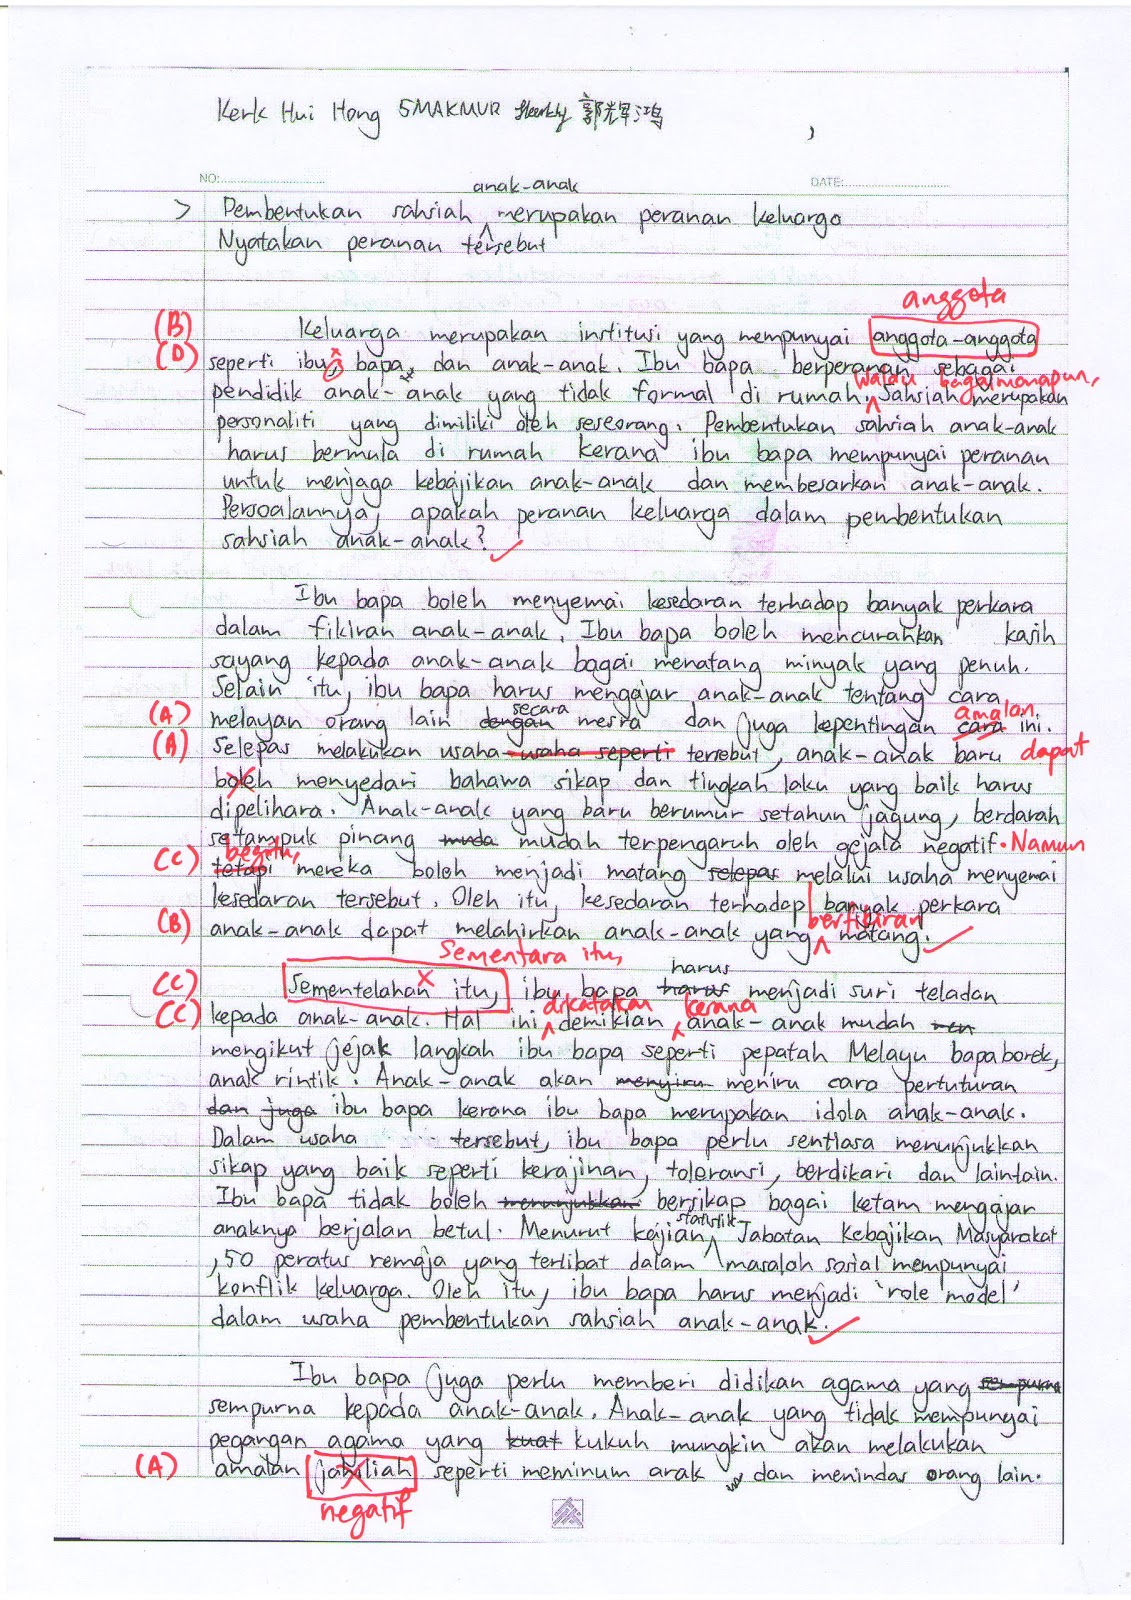 Kerk Hui Hong 5MAKMUR 郭辉鸿
NO:
DATE:
anak-anak
> Pembentukan sahsiah ^ merupakan peranan keluarga
Nyatakan peranan tersebut
anggota
(B) Keluarga merupakan institusi yang mempunyai anggota-anggota
(D) seperti ibu, bapa, dan anak-anak. Ibu bapa berperanan sebagai
Walau bagaimanapun,
pendidik anak-anak yang tidak formal di rumah. ^ Sahsiah merupakan
personaliti yang dimiliki oleh seseorang. Pembentukan sahsiah anak-anak
harus bermula di rumah kerana ibu bapa mempunyai peranan
untuk menjaga kebajikan anak-anak dan membesarkan anak-anak.
Persoalannya, apakah peranan keluarga dalam pembentukan
sahsiah anak-anak?
Ibu bapa boleh menyemai kesedaran terhadap banyak perkara
dalam fikiran anak-anak. Ibu bapa boleh mencurahkan kasih
sayang kepada anak-anak bagai menatang minyak yang penuh.
Selain itu, ibu bapa harus mengajar anak-anak tentang cara
secara amalan
(A) melayan orang lain dengan mesra dan juga kepentingan cara ini.
(A) Selepas melakukan usaha-usaha seperti tersebut, anak-anak baru dapat
boleh menyedari bahawa sikap dan tingkah laku yang baik harus
dipelihara. Anak-anak yang baru berumur setahun jagung, berdarah
setampuk pinang muda mudah terpengaruh oleh gejala negatif. Namun
begitu,
(C) tetapi mereka boleh menjadi matang selepas melalui usaha menyemai
kesedaran tersebut. Oleh itu, kesedaran terhadap banyak perkara
berfikiran
(B) anak-anak dapat melahirkan anak-anak yang ^ matang.
Sementara itu,
harus
(C) Sementelahan itu, ibu bapa harus menjadi suri teladan
dikatakan kerana
(C) kepada anak-anak. Hal ini ^ demikian ^ anak-anak mudah men
mengikut jejak langkah ibu bapa seperti pepatah Melayu bapa borek,
anak rintik. Anak-anak akan menyiru meniru cara pertuturan
dan juga ibu bapa kerana ibu bapa merupakan idola anak-anak.
Dalam usaha tersebut, ibu bapa perlu sentiasa menunjukkan
sikap yang baik seperti kerajinan, toleransi, berdikari dan lain-lain.
Ibu bapa tidak boleh menunjukkan bersikap bagai ketam mengajar
anaknya berjalan betul. Menurut kajian ^ Jabatan Kebajikan Masyarakat
statistik
, 50 peratus remaja yang terlibat dalam masalah sosial mempunyai
konflik keluarga. Oleh itu, ibu bapa harus menjadi 'role model'
dalam usaha pembentukan sahsiah anak-anak.
Ibu bapa juga perlu memberi didikan agama yang sempurna
sempurna kepada anak-anak. Anak-anak yang tidak mempunyai
pegangan agama yang kuat kukuh mungkin akan melakukan
(A) amalan jahiliah seperti meminum arak dan menindas orang lain.
negatif